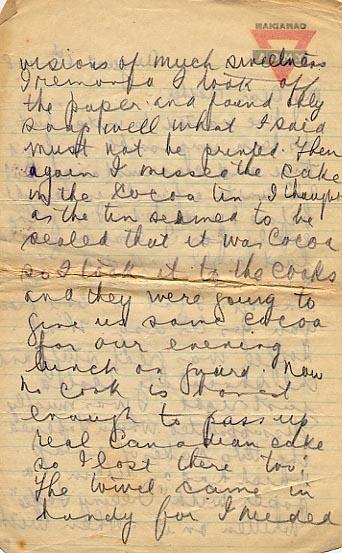 CANADIAN
visions of much sweetness
I removed I took off
the paper and found only
soap well what I said
must not be printed. Then
again I missed the cake
in the Cocoa tin I thought
as the tin seemed to be
sealed that it was Cocoa
so I took it to the cooks
and they were going to
give us some cocoa
for our evening
lunch on guard. Now
no cook is honest
enough to pass up
real Canadian cake
so I lost there too.
The towel came in
handy for I needed